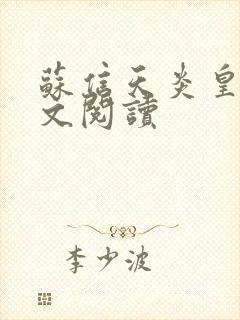 蘇信天炎皇
文閱讀
李少波